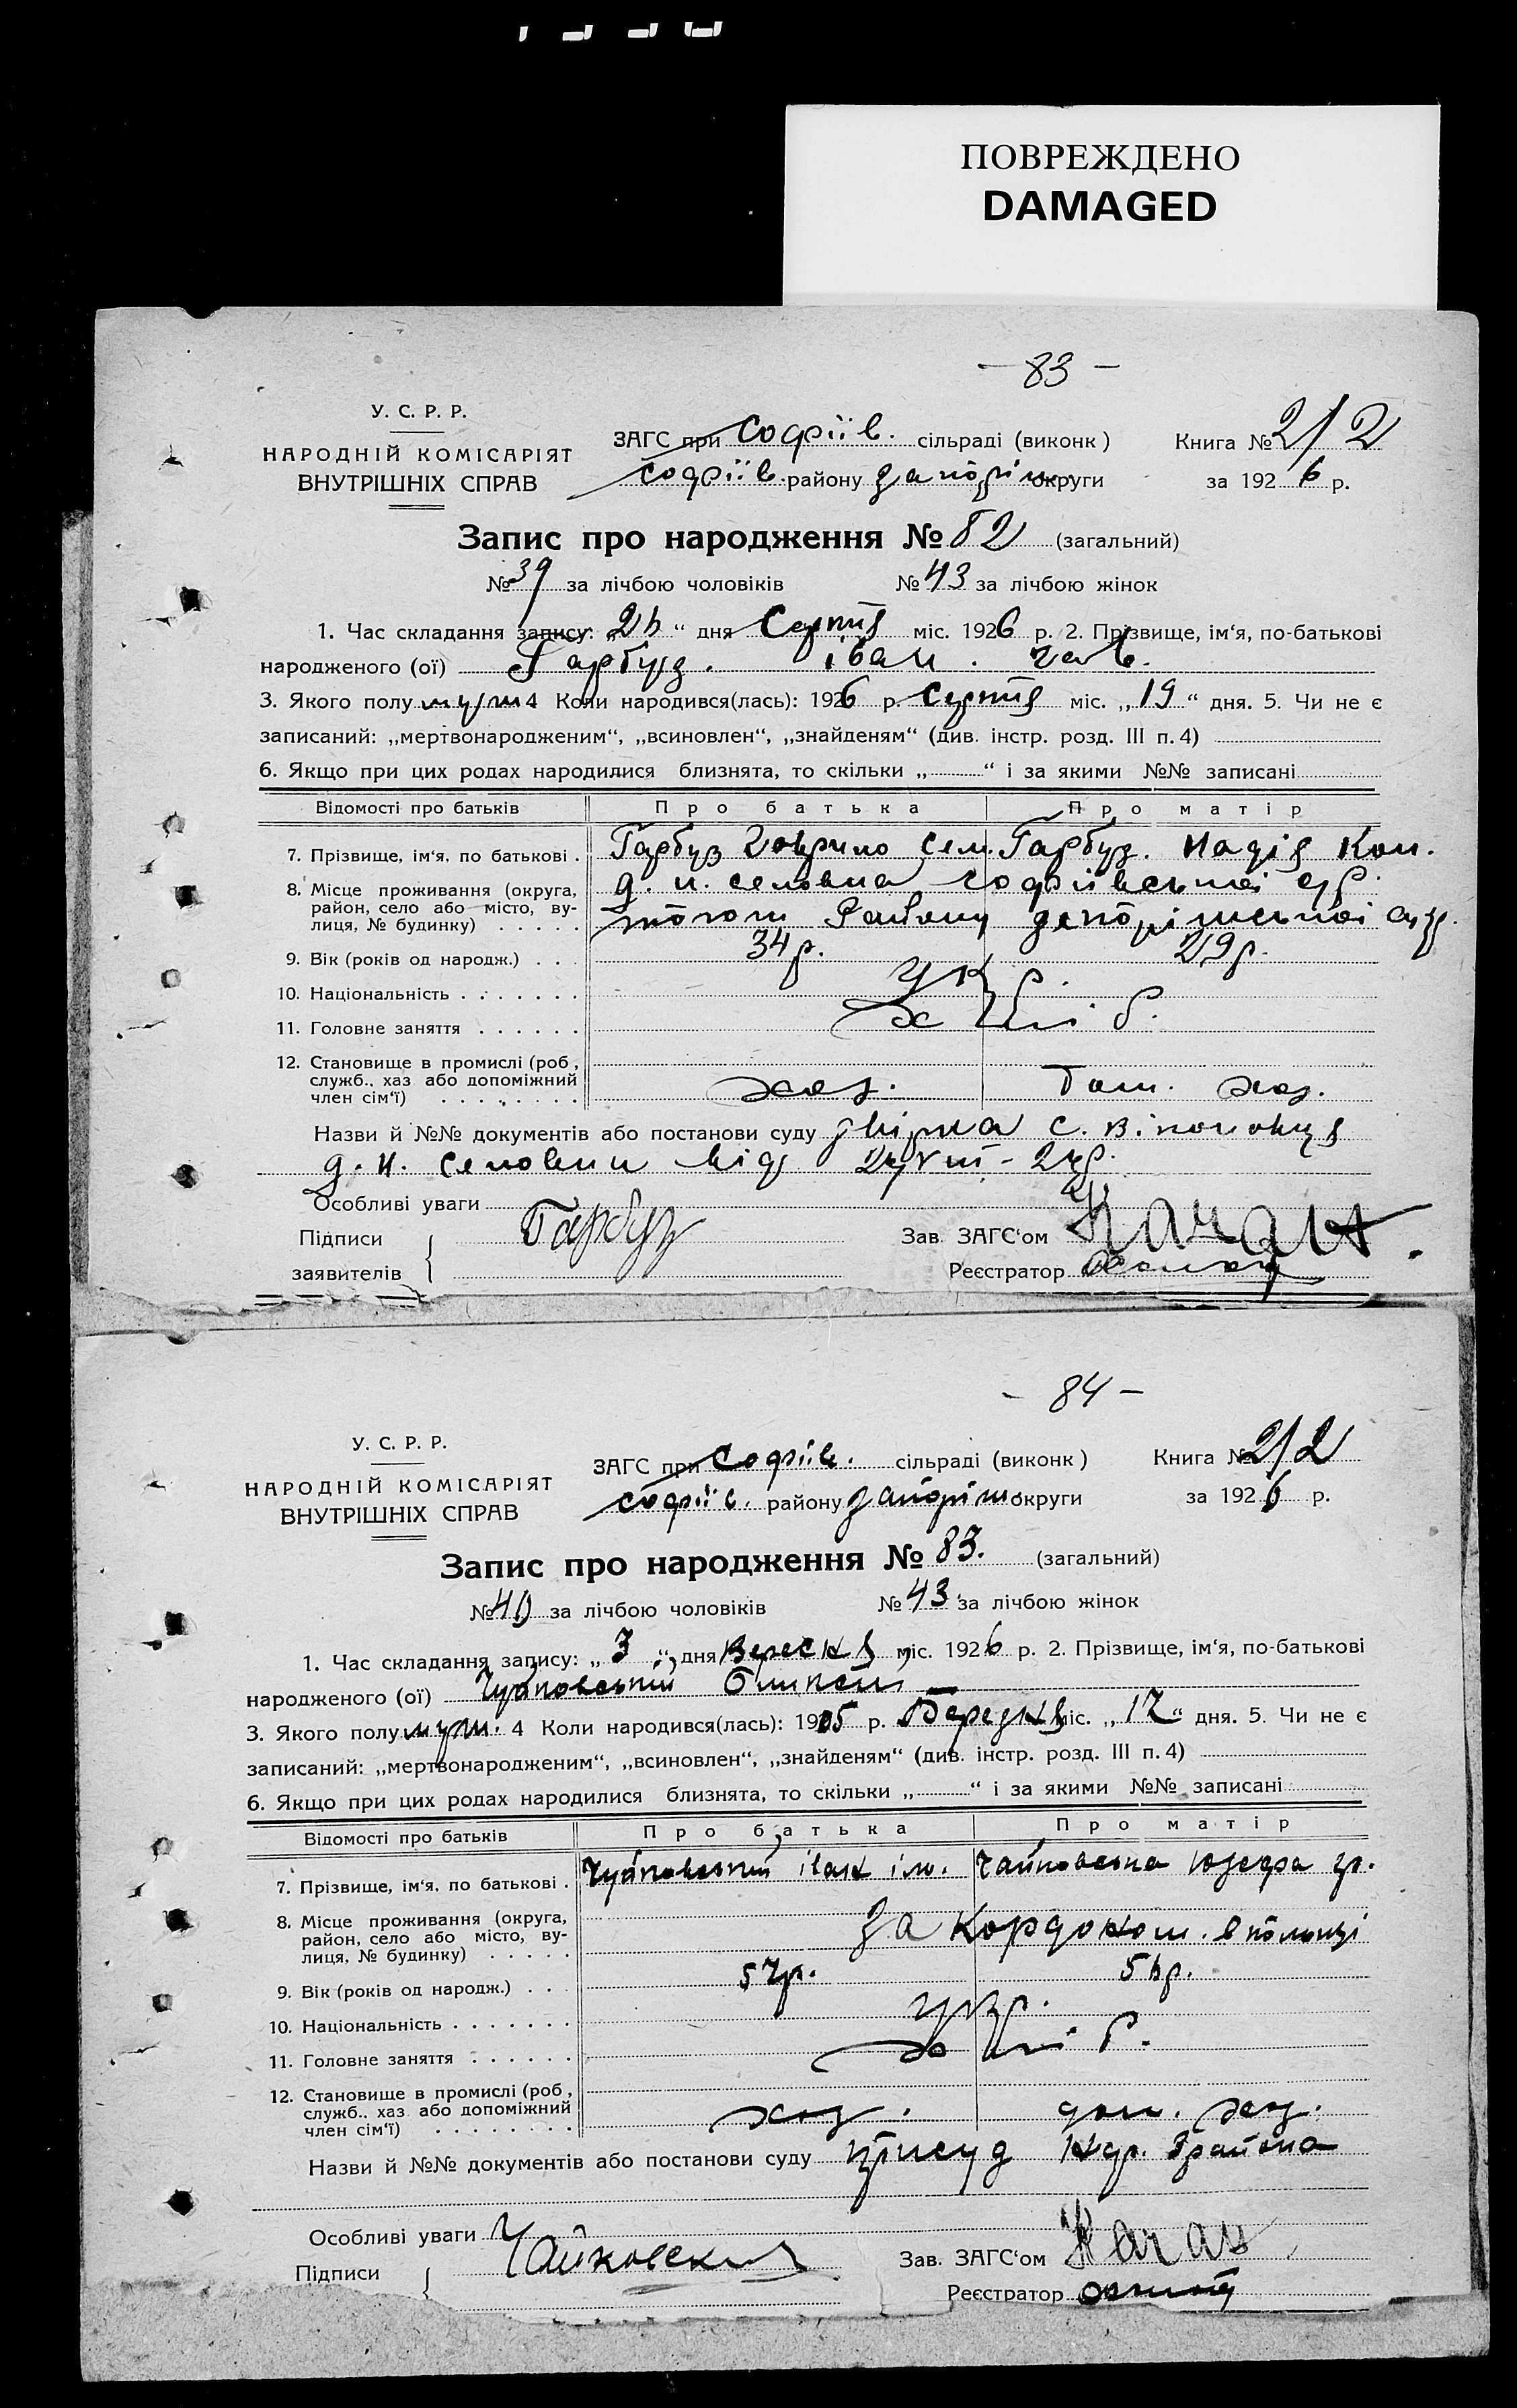 ПОВРЕЖДЕНО
DAMAGED
- 83 -
У. С. Р. Р.
НАРОДНІЙ КОМІСАРІЯТ
ВНУТРІШНІХ СПРАВ
ЗАГС при Софіїв. сільраді (виконк)
Софіїв. району Запоріж округи
Книга № 2/2
за 1926 р.
Запис про народження № 82 (загальний)
№ 39 за лічбою чоловіків № 43 за лічбою жінок
1. Час складання запису: „ “ дня Серпня міс. 1926 р. 2. Прізвище, ім‘я, по-батькові
народженого (ої) Гарбуз. іван. гав.
3. Якого полу муж 4 Коли народився(лась): 1926 р. Серпня міс. „19“ дня. 5. Чи не є
записаний: „мертвонародженим“, „всиновлен“, „знайденям“ (див. інстр. розд. III п. 4)
6. Якщо при цих родах народилися близнята, то скільки „ “ і за якими №№ записані
Відомості про батьків Про батька Про матір
7. Прізвище, ім‘я, по батькові . Гарбуз Гаврило Сем. Гарбуз. Надія Кон.
8. Місце проживання (округа, район, село або місто, вулиця, № будинку) . . . . . с. Софіївської с/р.
того ж Району Запоріжської окр.
9. Вік (років од народж.) . . . 34 р. 29 р.
10. Національність . . . . . . . укр.
11. Головне заняття . . . . . . хліб.
12. Становище в промислі (роб, служб., хаз або допоміжний член сім‘ї) . . . . . . . . хаз. Дом. хаз.
Назви й №№ документів або постанови суду Звірка с. виконовця
від
Особливі уваги
Підписи заявителів { Гарбуз
Зав. ЗАГС‘ом
Реєстратор
- 84 -
У. С. Р. Р.
НАРОДНІЙ КОМІСАРІЯТ
ВНУТРІШНІХ СПРАВ
ЗАГС при Софіїв. сільраді (виконк)
Софіїв. району Запоріж. округи
Книга № 2/2
за 1926 р.
Запис про народження № 83. (загальний)
№ 40 за лічбою чоловіків № 43 за лічбою жінок
1. Час складання запису: „3“ дня Вересня міс. 1926 р. 2. Прізвище, ім‘я, по-батькові
народженого (ої) Чайковський Олексій
3. Якого полу муж. 4 Коли народився(лась): 1905 р. Березня міс. „17“ дня. 5. Чи не є
записаний: „мертвонародженим“, „всиновлен“, „знайденям“ (див. інстр. розд. III п. 4)
6. Якщо при цих родах народилися близнята, то скільки „ “ і за якими №№ записані
Відомості про батьків Про батька Про матір
7. Прізвище, ім‘я, по батькові . Чайковський іван іл. Чайковська Юзефа гр.
8. Місце проживання (округа, район, село або місто, вулиця, № будинку) . . . . . За кордоном. в польщі
9. Вік (років од народж.) . . . 57 р. р.
10. Національність . . . . . . . укр.
11. Головне заняття . . . . . . хліб.
12. Становище в промислі (роб, служб., хаз або допоміжний член сім‘ї) . . . . . . . . хаз. дом. хаз.
Назви й №№ документів або постанови суду присуд Нар. района
Особливі уваги
Підписи { Чайковский
Зав. ЗАГС‘ом
Реєстратор